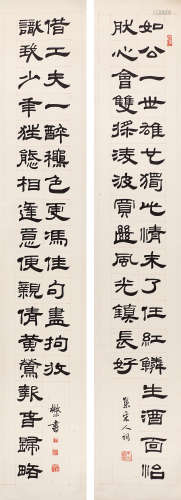 如公一世雄也獨此情未了任紅鱗生酒面怡
肰心會雙槳淩波賞盡風光鎮長好
集宋人詞
識我少年狂態相逢意便親倩黃鶯報春歸路
借工夫一醉穠色更馮佳句盡拘收